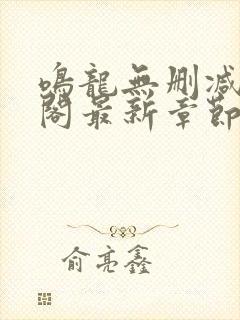 鳴龍無删减
閣最新章節
俞亮鑫